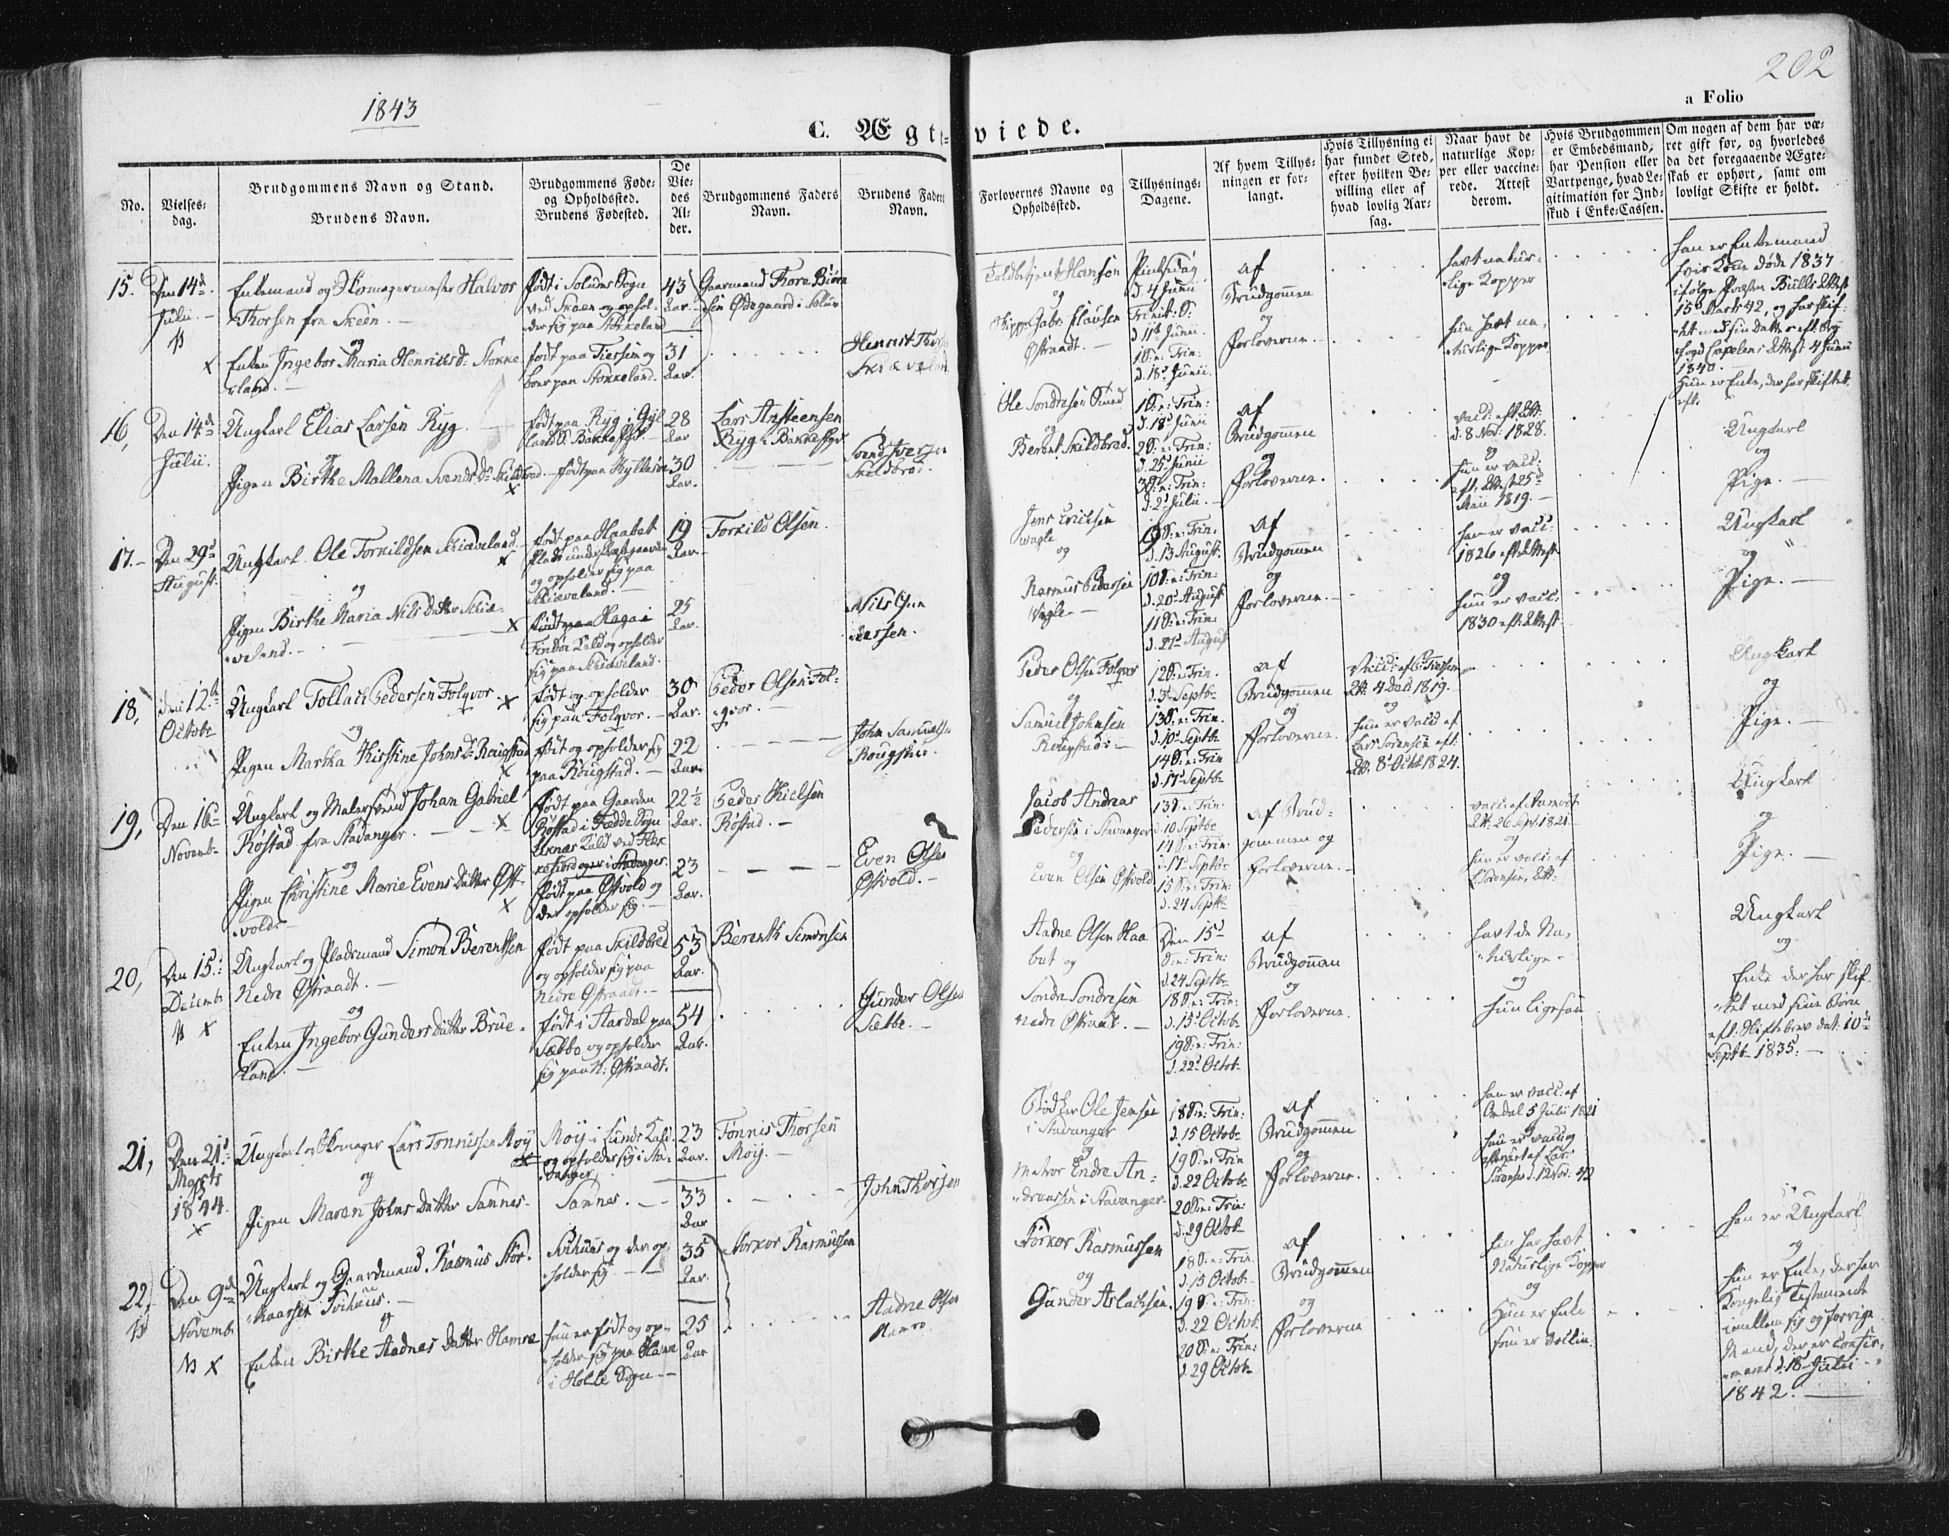 202
1843
a Folio
C. Ægteviede.
No.
Vielses-
dag.
Brudgommens Navn og Stand.
Brudens Navn.
Brudgommens Føde-
og Opholdssted.
Brudens Fødested.
De
Vie-
des
Al-
der.
Brudgommens Faders
Navn.
Brudens Faders
Navn.
Forlovernes Navne og
Opholdssted.
Tillysnings-
Dagene.
Af hvem Tillys-
ningen er for-
langt.
Hvis Tillysning ei
har fundet Sted,
efter hvilken Be-
villing eller af
hvad lovlig Aar-
sag.
Naar havt de
naturlige Kop-
per eller vaccine-
rede. Attest
derom.
Hvis Brudgommen
er Embedsmand,
har Pension eller
Vartpenge, hvad Le-
gitimation for Ind-
skud i Enke-Cassen.
Om nogen af dem har væ-
ret gift før, og hvorledes
da det foregaaende Ægte-
skab er ophørt, samt om
lovligt Skifte er holdt.
15.
Den 14d
Julii.
Enkemand og Skomagermester Halvor
Thorsen fra Skeen
og
Enken Ingebor Maria Henriksd: Stokke
land.
født i Solums Sogn
ved Skeen og ophol-
der sig paa Stokkeland
født paa Tiersem og
boer paa Stokkeland.
43
Aar.
31
Aar.
Gaarmand Thore Biørn
sen Ødegaard i Solum
Henrik Thor
Skiæveland
Toldbetjent Hansen
og
Gabr. Clausen
Østraadt.
Pintsedag
d. 4 Junii
Trinit: S:
d. 11te Junii.
1 S: e: Trin:
d. 18d Junii.
af
Brudgommen
og
Forloverne.
havt natur-
lige Kopper
hun havt na-
turlige Kopper
han er Enkemand
hvis Kone døde 1837
ifølge Præsten Bulls Attest
15d Marts 42, og har skif-
tet med sin Datter eft.
Attest 4 Junii
1840.
Hun er Enke, der har skiftet
16,
Den 14d
Julii.
Ungkarl Elias Larsen Ryg
og
Pigen Birthe Mallena Svendsd:
født paa Ryg i Gyl
født paa Kyllesø
28
Aar
30
Aar.
Lars Aasteensen
Ryg i Bakke
Svend Iversen
Skildbræd.
Ole Sondresen Smed
og
Berent Skildbræd
1 S: e: Trin:
d. 18d Junii
2 S: e: Trin:
d. 25d Junii
3 S: e: Trin:
d. 2d Julii.
af
Brudgommen
og
Forloverne.
vacc: eft. Att:
d. 8 Nov: 1828.
og
hun er vacc:
eft. Attest 25d
Maii 1819.
Ungkarl
og
Pige.
17.
Den 29d
August
Ungkarl Ole Torkildsen Skiæveland
og
Pigen Birthe Maria Nils Datter Skiæ-
veland.
født paa Haabet
Plads under
og opholder sig paa
Skiæveland.
født paa Haga i
Findøe Kald og opholder
sig paa Skiæveland.
19
Aar.
25
Aar.
Torkild Olsen.
Nils
Larsen.
Jens Ericksen
Vagle
og
Rasmus Pedersen
Vagle.
9 S: e: Trin.
d. 13 August.
10 S: e: Trin:
d. 20d August
11 S: e: Trin:
d. 27d August
af
Brudgommen
og
Forloverne.
han er vacc:
1826 eft. Attest
og
hun er vacc:
1830 eft. Attest
Ungkarl
og
Pige.
18,
den 12d
Octobr
Ungkarl Tollack Pedersen Folqvor
og
Pigen Martha Kirstine Johnsd: Rougstad
født og opholder
sig paa Folqvor.
født og opholder sig
paa Rougstad.
30
Aar.
22
Aar.
Peder Olsen Fol-
qvor.
John Samuelsen
Rougstad.
Peder Olsen Folqvor
og
Samuel Johnsen
Rougstad
12 S: e: Trin.
d. 3d Septbr
13 S: e: Trin.
d. 10d Septbr
14 S: e: Trin
d. 17d Septbr
af
Brudgommen
og
Forloverne.
Att: 4 Dec 1819.
og
hun er vacc af
Lars Sørensen eft.
Att: 8d Octob 1824.
Ungkarl
og
Pige.
19,
Den 16
Novemb:
Ungkarl og Malersvend Johan Gabriel
Røstad fra Stavanger.
og
Pigen Christine Marie Evens Datter Øst-
vold.
født paa Gaarden
Røstad i Sogn
og er i Stavanger.
født paa Østvold og
der opholder sig.
22½
Aar.
23
Aar.
Peder Nielsen
Røstad.
Even Olsen
Østvold.
Jacob Andreas
Pedersen i Stavanger
og
Even Olsen Østvold
13 S: e: Trin:
d. 10 Septbr
14 S: e: Trin:
d. 17d Septbr
15 S: e: Trin:
d. 24 Septbr
af Brud-
gommen og
Forloverne.
Att: 26 Sept. 1821.
og
hun er vacc: af
Sørensen, Att:
Ungkarl
og
Pige.
20,
Den 15:
Decemb.
Ungkarl og Pladsmand Simon Berentsen
Nedre Østraadt.
og
Enken Ingebor Gunders Datter Brue-
land.
født paa Skildbred
og opholder sig paa
Nedre Østraadt.
født i Aardal paa
Sæbbø og opholder
sig paa N: Østraadt.
53
Aar.
54
Aar.
Berenth Simonsen
Gunder Olsen
Sæbbe.
Aadne Olsen Haa
but og
Sondre Sondresen
Nedre Østraadt.
Den 15d
S: e: Trin:
d. 24 Septbr
18 S: e: Trin:
d. 15d Octobr
19 S: e: Trin:
d. 22d Octobr
af
Brudgommen
og
Forloverne.
havt de Na-
turlige
og
hun ligesaa
Ungkarl
og
Enke der har skif-
tet med sine Børn
eft. Skiftebrev dat: 10de
Septbr 1835.
21,
Den 21d
Marts
1844.
Ungkarl og Skomager Lars Tønnissen Moy
og
Pigen Maren Johns Datter Sannes
Moy i Lunds Kald.
og opholder sig i Sta-
vanger.
Sannes.
23
Aar.
33
Aar
Tønnis Thorsen
Moy.
John Thorsen
Bødker Ole Jensen
i Stavanger
og
Matros Endre An-
dreassen i Stavanger
18 S: e: Trin:
d. 15 Octobr
19 S: e: Trin
d. 22 Octobr
20 S: e: Trin:
d. 29 Octobr
af
Brudgommen
og
Forloverne.
han er vacc: af
5 Julii 1821
og
hun er vacc
Sørensen d. 12 Nov: 42
22,
Den 9d
Novemb:
Ungkarl og Gaardmand Rasmus Stor-
kaarsen Tvihuus.
og
Enken Birthe Aadnes Datter Hamre
Tvihuus og der op-
holder sig
hun er født og op-
holder sig paa Hamre
i Holle Sogn.
35
Aar.
25
Aar
Storkor Rasmussen
Aadne Olsen
Hamre
Storkor Rasmussen
og
Gunder Aslachsen.
18 S: e: Trin
d. 15 Octobr
19 S: e: Trin:
d. 22 Octob:
20 S: e: Trin:
d. 29 Octobr
af
Brudgommen
og
Forloverne
han har havt
Naturlige Kopper
og
Hun er Enke
hun er vaccin:
han er Ungkarl
og
hun er Enke, der har
Kongelig Testamente
imellem sig og forrige
Mand, der er confir-
meret d. 18 Julii
1842.